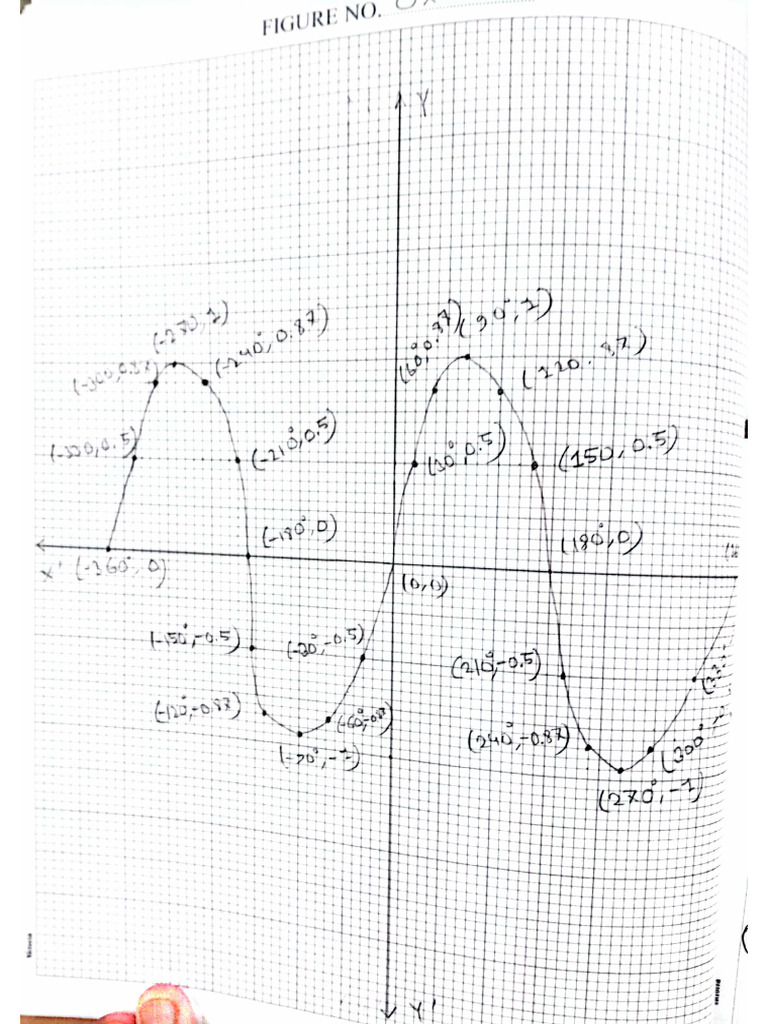 FIGURE NO.
Y
(-270,1)
(-240°,0.87)
(-300,0.87)
(60°,0.87)
(90°,1)
(-330,0.5)
(-210°,0.5)
(30°,0.5)
(150,0.5)
(-180°,0)
(180°,0)
X' (-360°,0)
(0,0)
(-150°,-0.5)
(210°,-0.5)
(-120°,-0.87)
(-60°,-0.87)
(240°,-0.87)
(300°
(270°,-1)
Y'